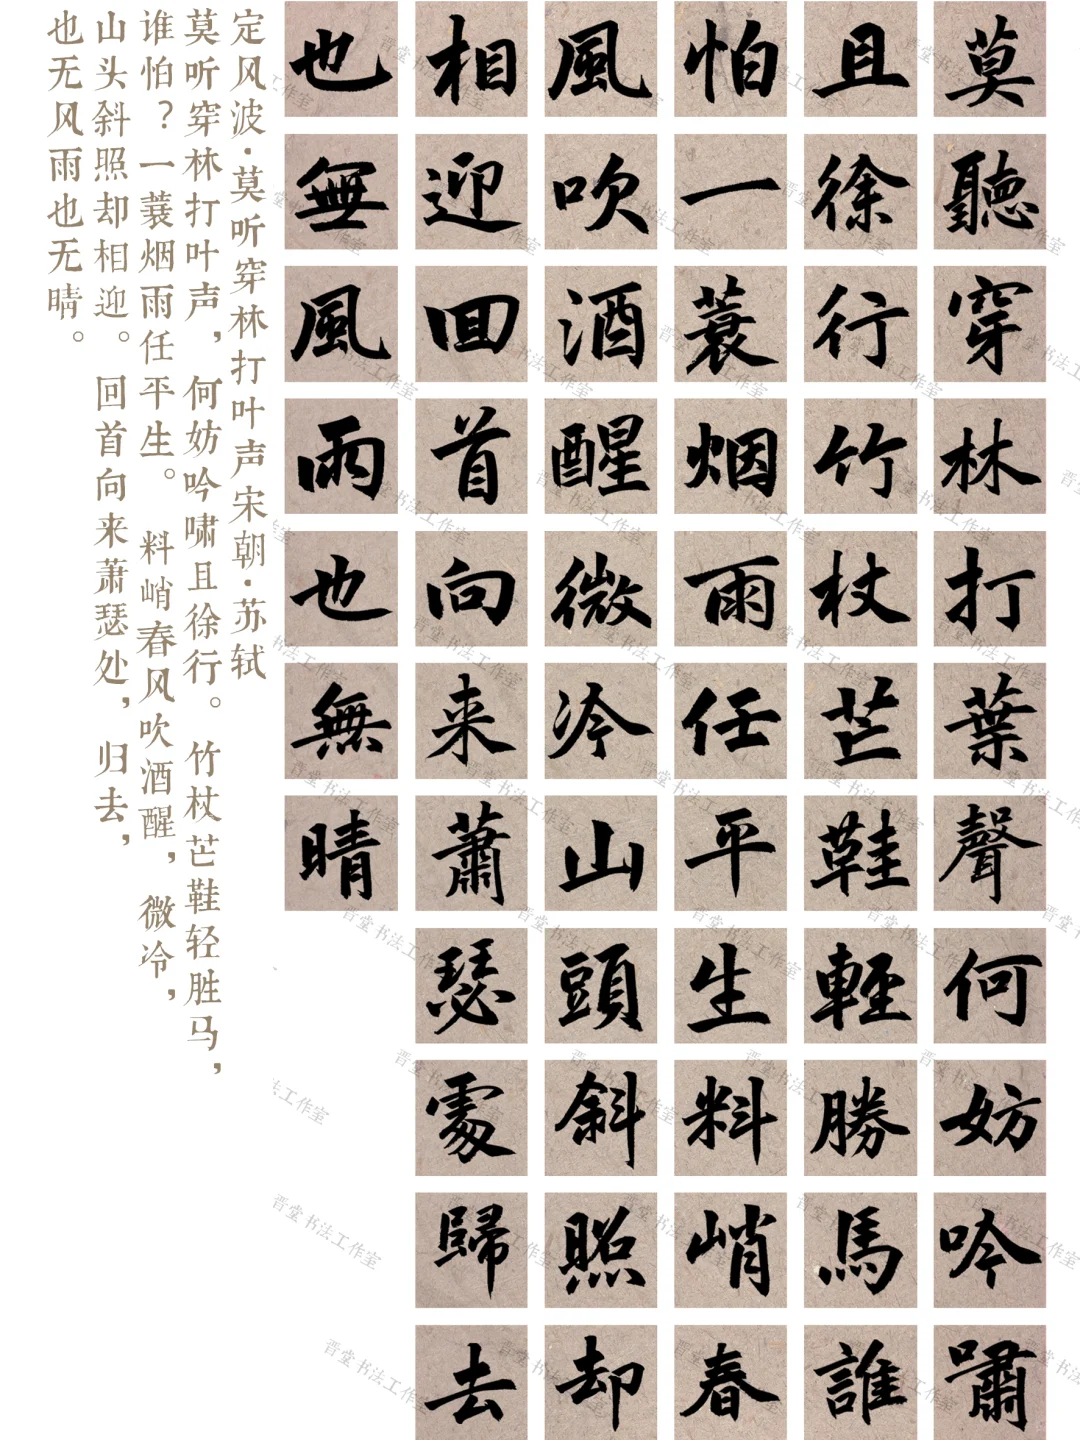 莫聽穿林打葉聲何妨吟嘯
且徐行竹杖芒鞋輕勝馬誰
怕一蓑烟雨任平生料峭春
風吹酒醒微冷山頭斜照却
相迎回首向来蕭瑟處歸去
也無風雨也無晴
定风波·莫听穿林打叶声宋朝·苏轼
莫听穿林打叶声，何妨吟啸且徐行。竹杖芒鞋轻胜马，
谁怕？一蓑烟雨任平生。 料峭春风吹酒醒，微冷，
山头斜照却相迎。回首向来萧瑟处，归去，
也无风雨也无晴。
晋堂书法工作室